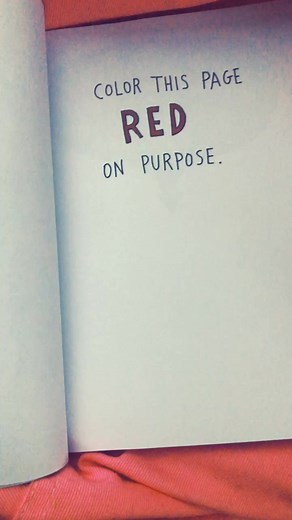 COLOR THIS PAGE
RED
ON PURPOSE.